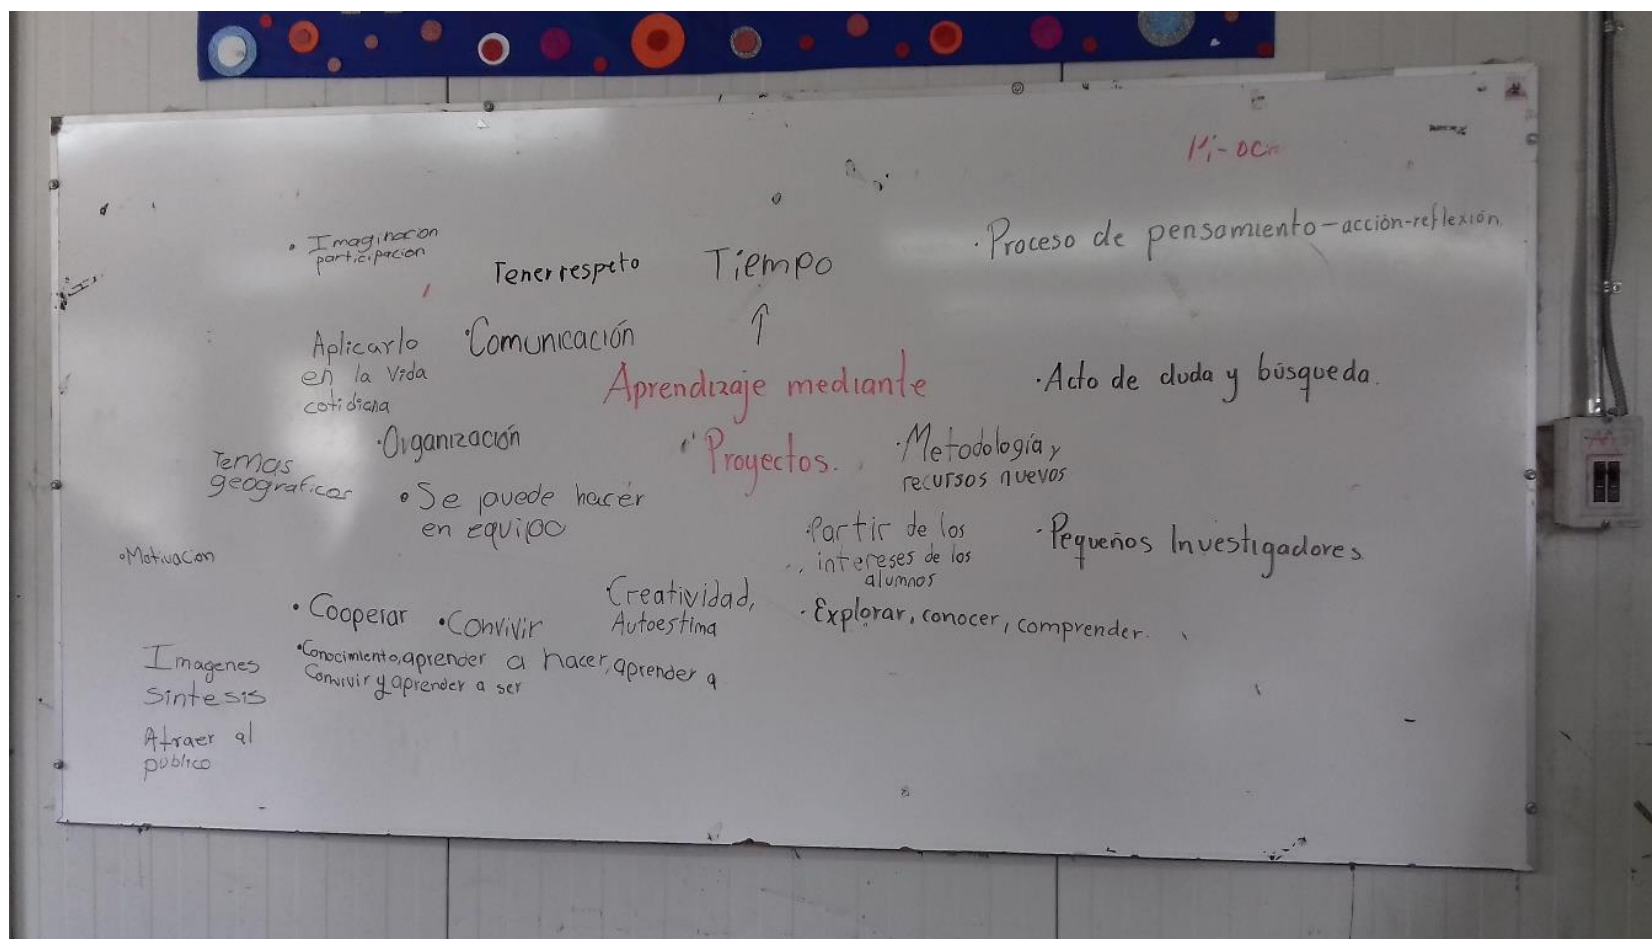 • Imaginacion
participacion
Tener respeto
Tiempo
• Proceso de pensamiento-acción-reflexión.
Aplicarlo
en la vida
cotidiana
• Comunicación
Aprendizaje mediante
Proyectos.
• Acto de duda y búsqueda.
• Organización
Temas
geograficos
• Se puede hacer
en equipo
• Metodología y
recursos nuevos
• Motivacion
• Partir de los
intereses de los
alumnos
• Pequeños Investigadores
• Cooperar
• Convivir
• Creatividad,
Autoestima
• Explorar, conocer, comprender.
Imagenes
Sintesis
Atraer al
publico
• Conocimiento, aprender a hacer, aprender a
Convivir y aprender a ser